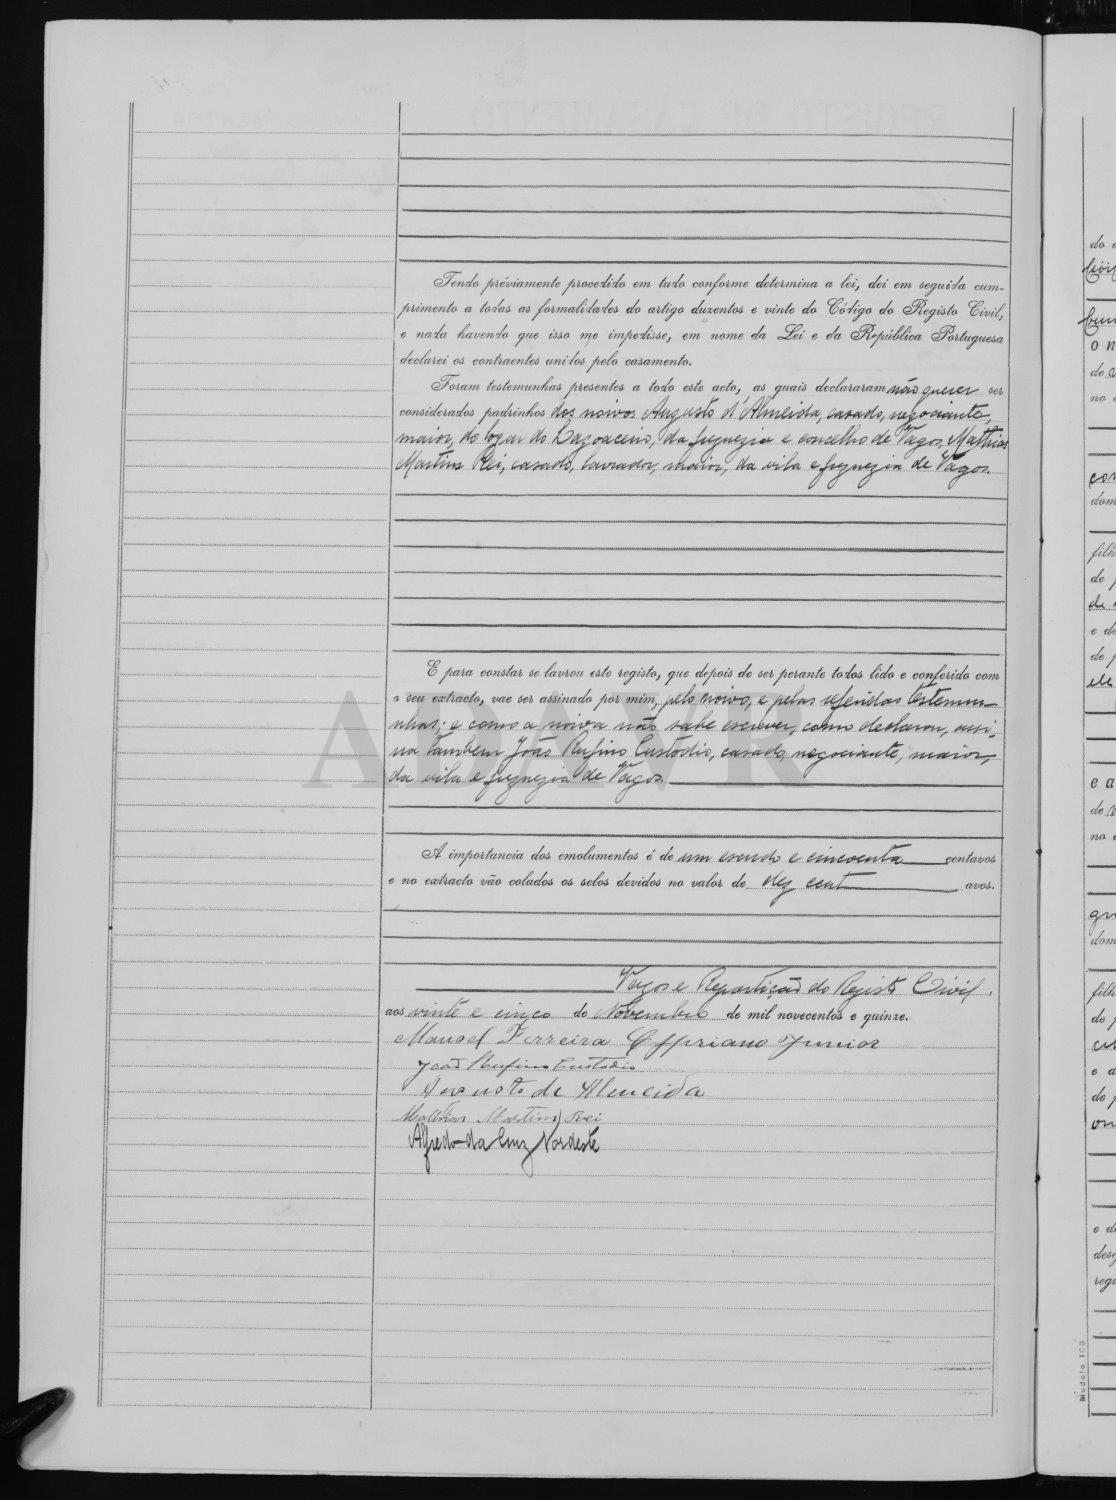 Tendo préviamente procedido em tudo conforme determina a lei, dei em seguida cum-
primento a todas as formalidades do artigo duzentos e vinte do Código do Registo Civil,
e nada havendo que isso me impedisse, em nome da Lei e da República Portuguesa
declarei os contraentes unidos pelo casamento.
Foram testemunhas presentes a todo este acto, as quais declararam não querer ser
considerados padrinhos dos noivos Augusto d'Almeida, casado, negociante,
maior, do logar do Lagoaceiro, da freguezia e concelho de Vagos, Mathias
Martins Rei, casado, lavrador, maior, da vila e freguezia de Vagos.
E para constar se lavrou este registo, que depois de ser perante todos lido e conferido com
o seu extracto, vae ser assinado por mim, pelo noivo, e pelas referidas testemu-
nhas; e como a noiva não sabe escrever, como declarou, assi-
na tambem João Rufino Custodio, casado, negociante, maior,
da vila e freguezia de Vagos.
A importancia dos emolumentos é de um escudo e cincoenta centavos
e no extracto vão colados os selos devidos no valor de dez cent avos.
Vagos e Repartição do Registo Civil,
aos vinte e cinco de Novembro de mil novecentos e quinze.
Manoel Ferreira Cypriano Junior
João Rufino Custodio
Augusto de Almeida
Mathias Martins Rei
Alfredo da Cruz Nordeste
do
de
no
con
dom
filh
de
de
e de
de
ele
e a
de
no
dom
filh
de
e d
de
e d
dese
regi
Modelo 103